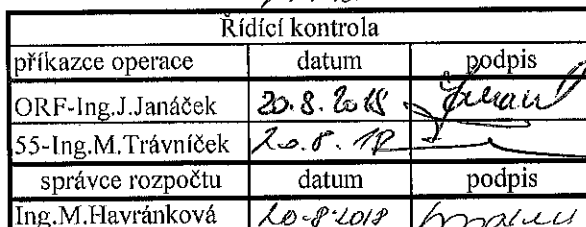 Řídící kontrola
příkazce operace datum podpis
ORF-Ing.J.Janáček 20.8.2018
55-Ing.M.Trávníček 20.8.18
správce rozpočtu datum podpis
Ing.M.Havránková 20-8-2018